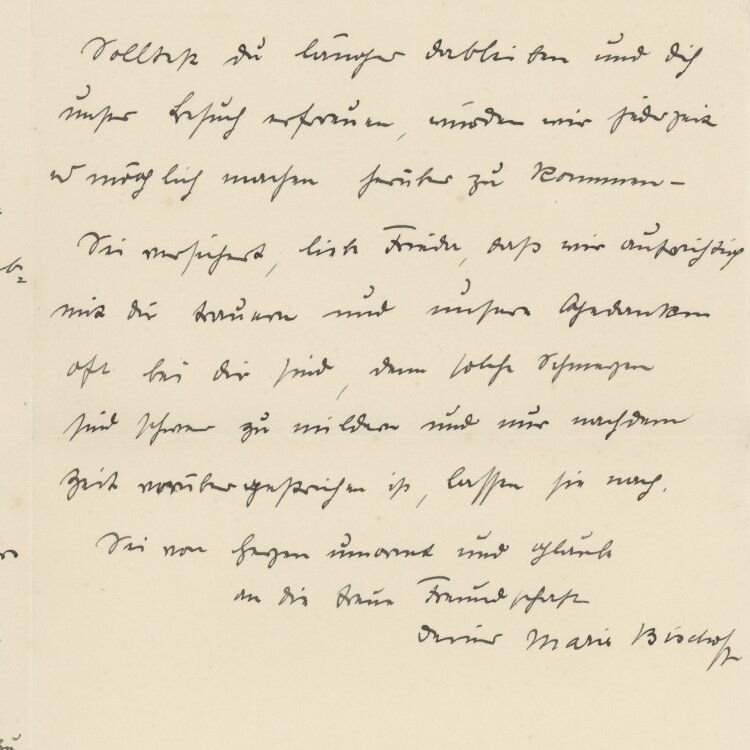 Solltest du länger dableiben und dich
unser Besuch erfreuen, würden wir jederzeit
es möglich machen herüber zu kommen –
Sei versichert, liebe Frieda, daß wir aufrichtig
mit dir trauern und unsere Gedanken
oft bei dir sind, denn solche Schmerzen
sind schwer zu mildern und nur nachdem
Zeit vorüber gestrichen ist, lassen sie nach.
Sei von Herzen umarmt und glaube
an die treue Freundschaft
deiner Marie Bischoff